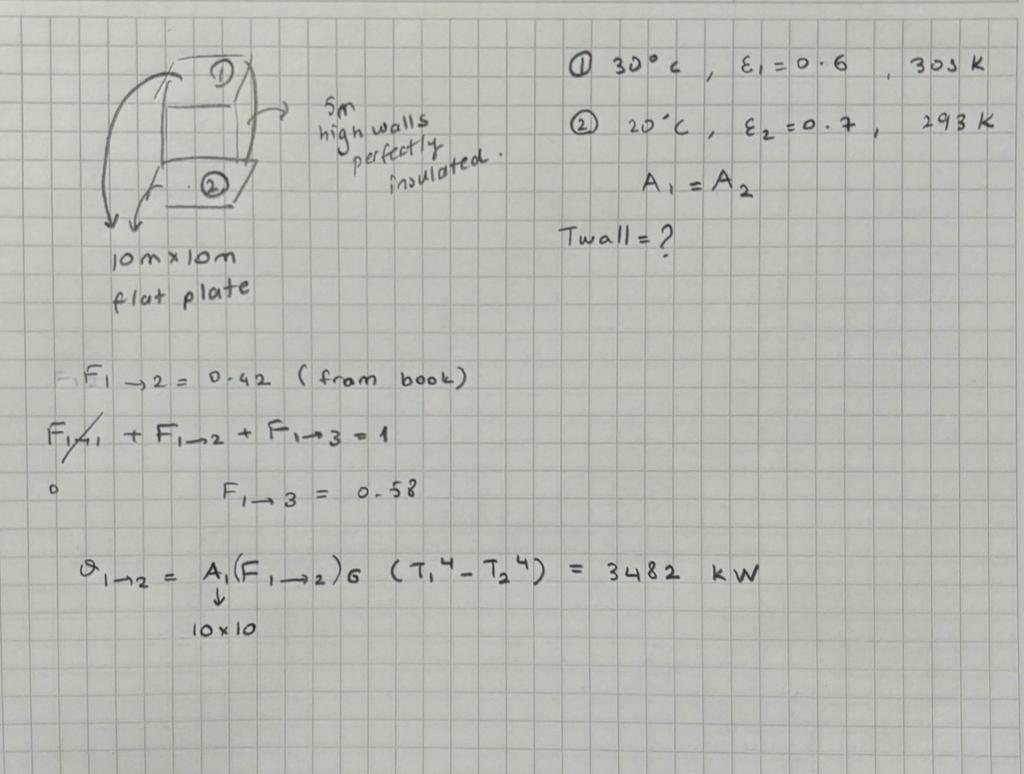 ①
②
5m
high walls
perfectly
insulated.
10m x 10m
flat plate
① 30°c, ε₁ = 0.6, 303 K
② 20°C, ε₂ = 0.7, 293 K
A₁ = A₂
Twall = ?
F₁→₂ = 0.42 (from book)
F₁→₁ + F₁→₂ + F₁→₃ = 1
0
F₁→₃ = 0.58
Q₁→₂ = A₁(F₁→₂)σ (T₁⁴ - T₂⁴) = 3482 kW
↓
10x10